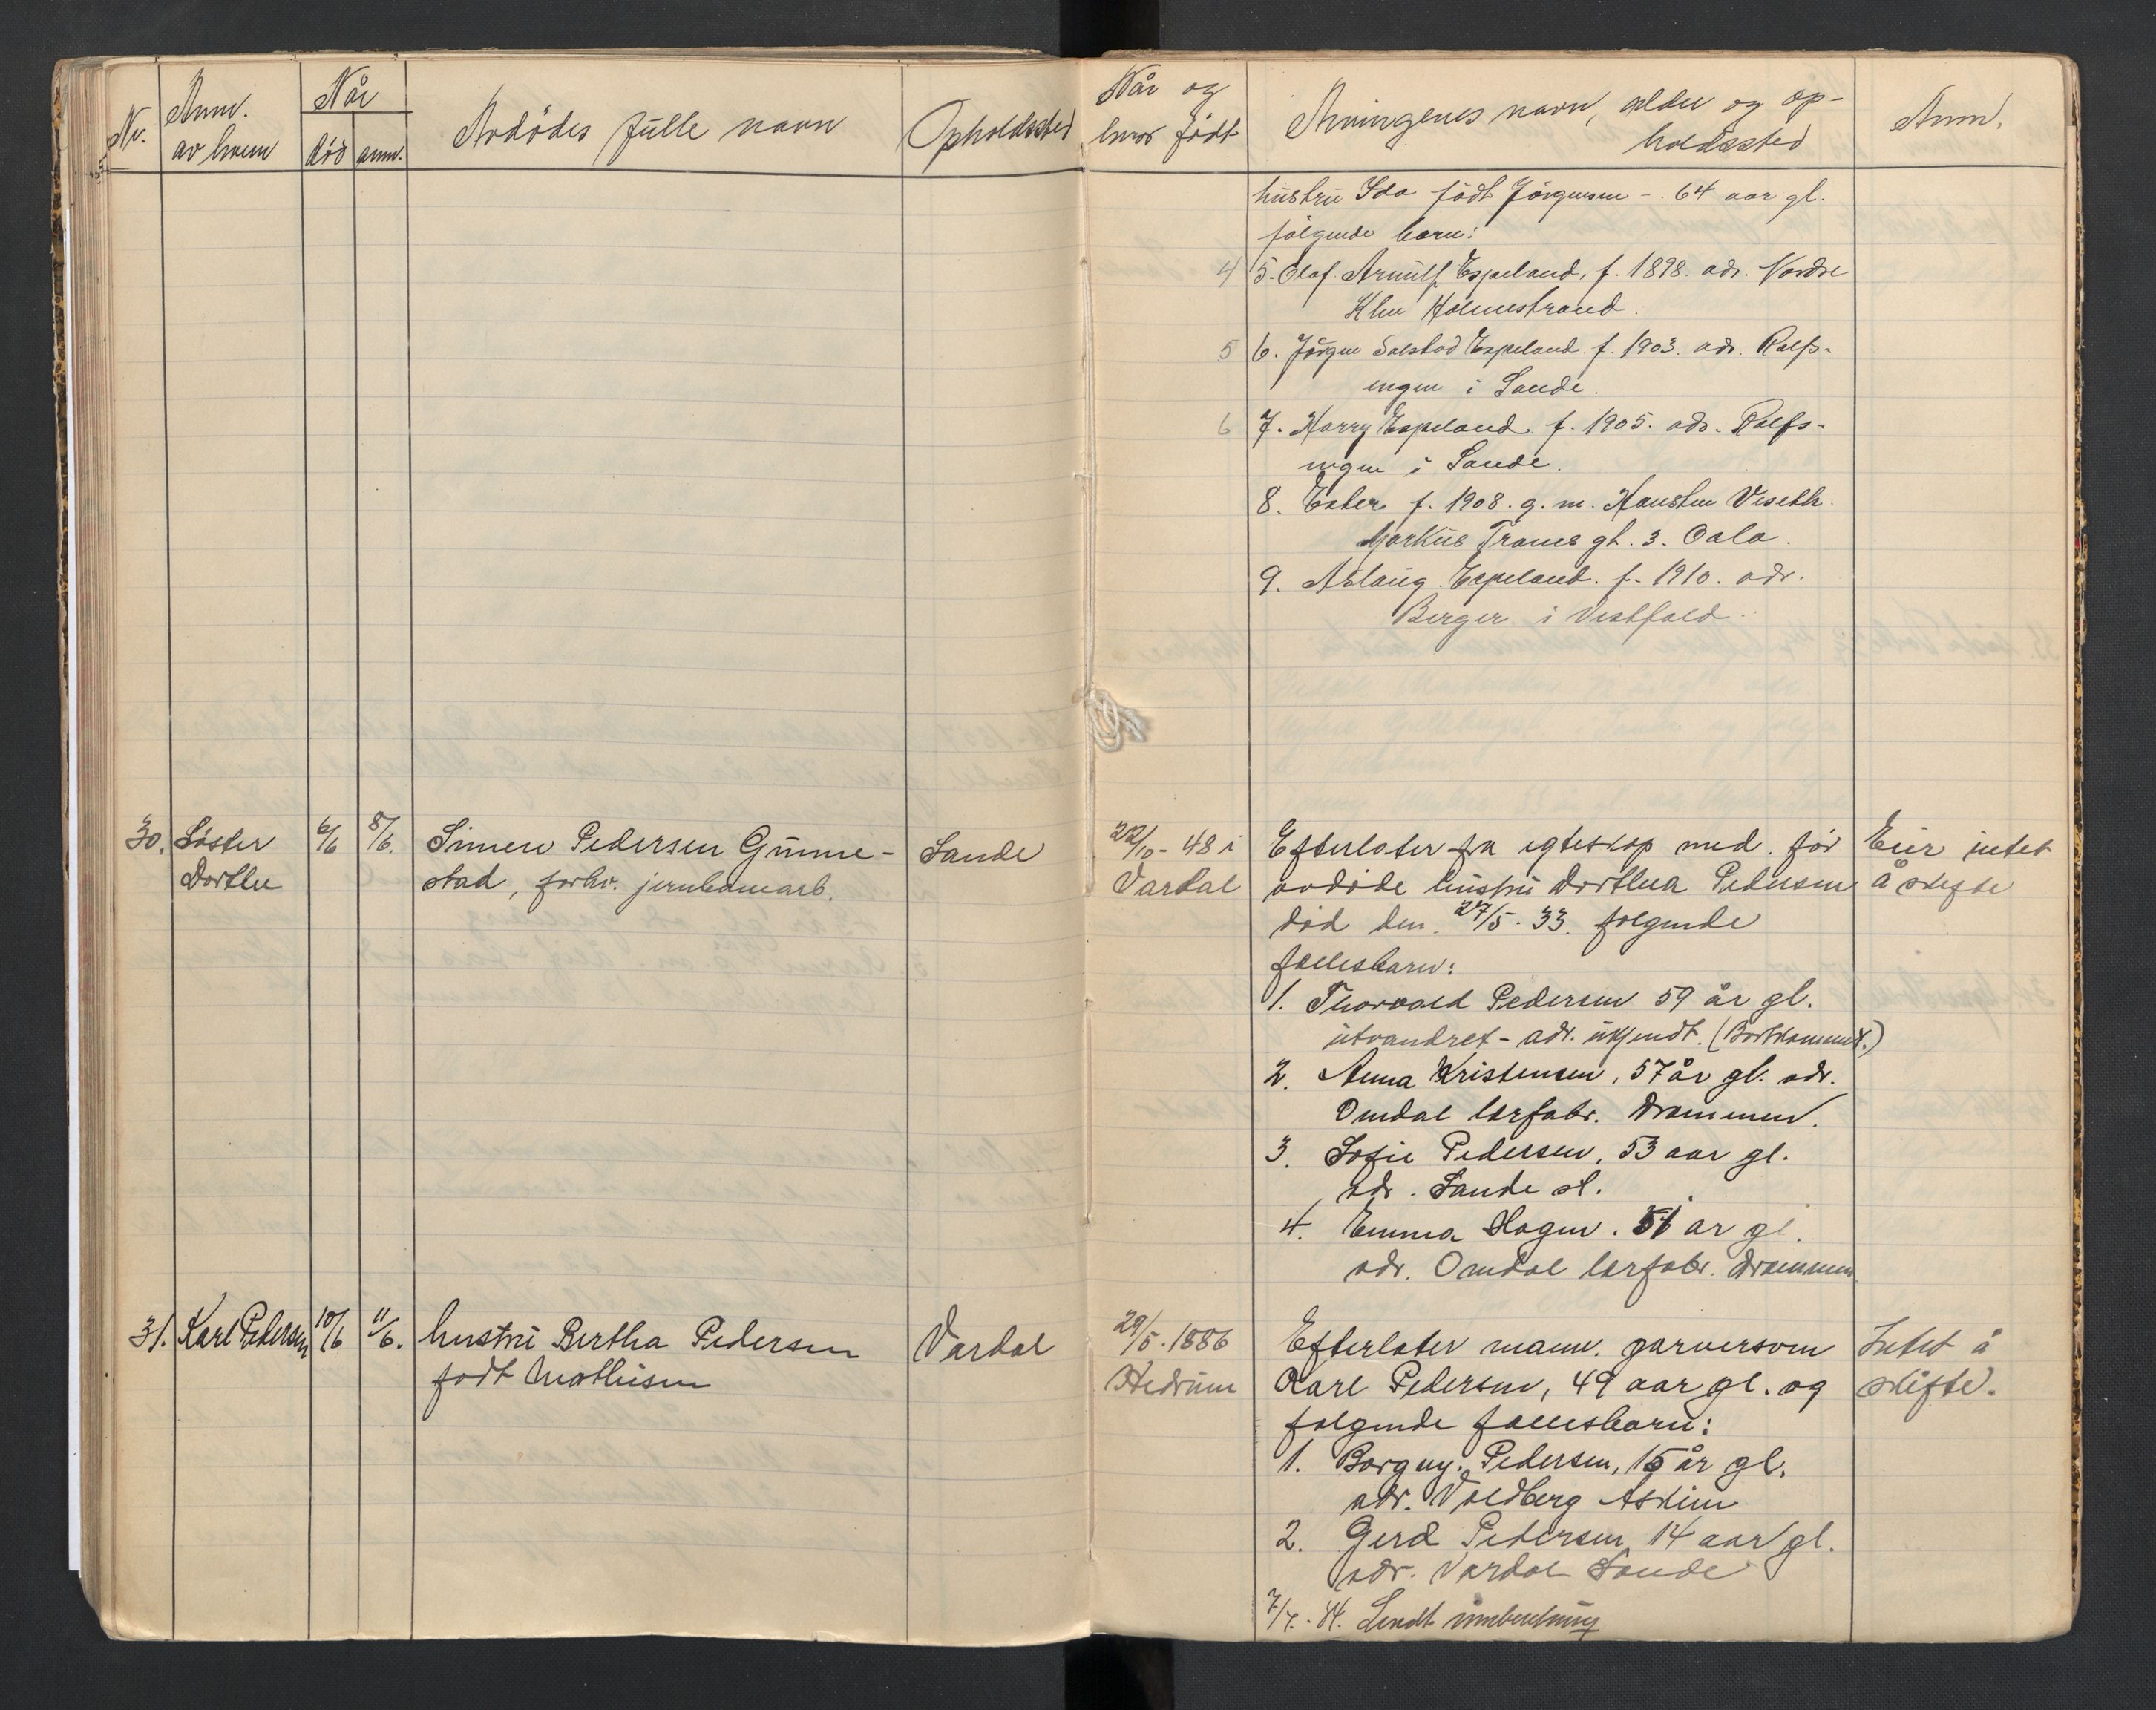 Nr.
Anm.
av hvem
Når
død anm.
Avdødes fulle navn
Opholdssted
Når og
hvor født
Arvingenes navn, alder og op-
holdssted
Anm.
hustru Ida født Jørgensen - 64 aar gl.
følgende barn:
4 5. Olaf Arnulf Espeland, f. 1898. adr. Nordre
Holmestrand.
5 6. Jørgen Salstad Espeland f. 1903. adr. Rolfs-
ingen i Sande.
6 7. Harry Espeland. f. 1905. adr. Rolfs-
ingen i Sande.
8. Ester f. 1908. g. m. Veseth.
Markus Tranes gt. 3. Oslo.
9. Aslaug Espeland. f. 1910. adr.
Berger i Vestfold.
30. Søster
Dorthe
6/6
8/6.
Simen Pedersen Gimme-
stad, forhv. jernbanearb.
Sande
22/10 - 48 i
Vardal
Efterlater fra egteskap med før
avdøde hustru Dorthea Pedersen
død den 27/5. 33. følgende
fellesbarn:
1. Thorvald Pedersen 59 år gl.
utvandret - adr. ukjendt. (Bortkommet.)
2. Anna Kristensen, 57 år gl. adr.
Omdal lærfabr. Drammen.
3. Sofie Pedersen, 53 aar gl.
adr. Sande st.
4. Emma Hagen. 51 ar gl.
adr. Omdal lærfabr. Drammen
Eier intet
å skifte
31. Karl Pedersen
10/6
11/6.
hustru Bertha Pedersen
født Mathisen
Vardal
29/5. 1886
Hedrum
Efterlater mann. garversvenn
Karl Pedersen, 49 aar gl. og
følgende fellesbarn:
1. Borgny Pedersen, 15 år gl.
adr. Voldberg Askim
2. Gerd Pedersen 14 aar gl.
adr. Vardal Sande
7/7. - 34. Sendt innberetning
Intet å
skifte.